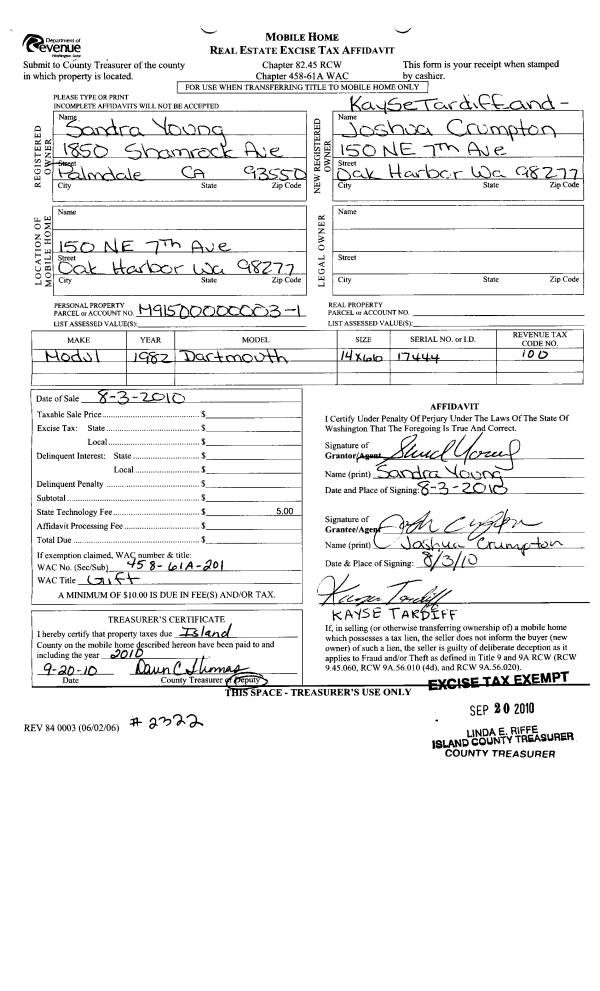 Department of
Revenue
Washington State
MOBILE HOME
REAL ESTATE EXCISE TAX AFFIDAVIT
Submit to County Treasurer of the county
in which property is located.
Chapter 82.45 RCW
Chapter 458-61A WAC
This form is your receipt when stamped
by cashier.
FOR USE WHEN TRANSFERRING TITLE TO MOBILE HOME ONLY
PLEASE TYPE OR PRINT
INCOMPLETE AFFIDAVITS WILL NOT BE ACCEPTED
REGISTERED OWNER
Name
Sandra Young
1850 Shamrock Ave
Street
Palmdale CA 93550
City State Zip Code
NEW REGISTERED OWNER
Kayse Tardiff and -
Name
Joshua Crumpton
150 NE 7th Ave
Street
Oak Harbor Wa 98277
City State Zip Code
LOCATION OF MOBILE HOME
Name
150 NE 7th Ave
Street
Oak Harbor Wa 98277
City State Zip Code
LEGAL OWNER
Name
Street
City State Zip Code
PERSONAL PROPERTY
PARCEL or ACCOUNT NO. M9150000000003-1
LIST ASSESSED VALUE(S):
REAL PROPERTY
PARCEL or ACCOUNT NO.
LIST ASSESSED VALUE(S):
MAKE YEAR MODEL SIZE SERIAL NO. or I.D. REVENUE TAX CODE NO.
Modul 1982 Dartmouth 14x66 17444 100
Date of Sale 8-3-2010
Taxable Sale Price $
Excise Tax: State $
Local $
Delinquent Interest: State $
Local $
Delinquent Penalty $
Subtotal $
State Technology Fee $ 5.00
Affidavit Processing Fee $
Total Due $
If exemption claimed, WAC number & title:
WAC No. (Sec/Sub) 458-61A-201
WAC Title Gift
A MINIMUM OF $10.00 IS DUE IN FEE(S) AND/OR TAX.
TREASURER'S CERTIFICATE
I hereby certify that property taxes due Island
County on the mobile home described hereon have been paid to and
including the year 2010
9-20-10
Date County Treasurer or Deputy
AFFIDAVIT
I Certify Under Penalty Of Perjury Under The Laws Of The State Of
Washington That The Foregoing Is True And Correct.
Signature of
Grantor/Agent
Name (print) Sandra Young
Date and Place of Signing: 8-3-2010
Signature of
Grantee/Agent
Name (print) Joshua Crumpton
Date & Place of Signing: 8/3/10
Kayse Tardiff
KAYSE TARDIFF
If, in selling (or otherwise transferring ownership of) a mobile home
which possesses a tax lien, the seller does not inform the buyer (new
owner) of such a lien, the seller is guilty of deliberate deception as it
applies to Fraud and/or Theft as defined in Title 9 and 9A RCW (RCW
9.45.060, RCW 9A.56.010 (4d), and RCW 9A.56.020).
THIS SPACE - TREASURER'S USE ONLY
EXCISE TAX EXEMPT
SEP 20 2010
LINDA E. RIFFE
ISLAND COUNTY TREASURER
COUNTY TREASURER
REV 84 0003 (06/02/06) # 2322